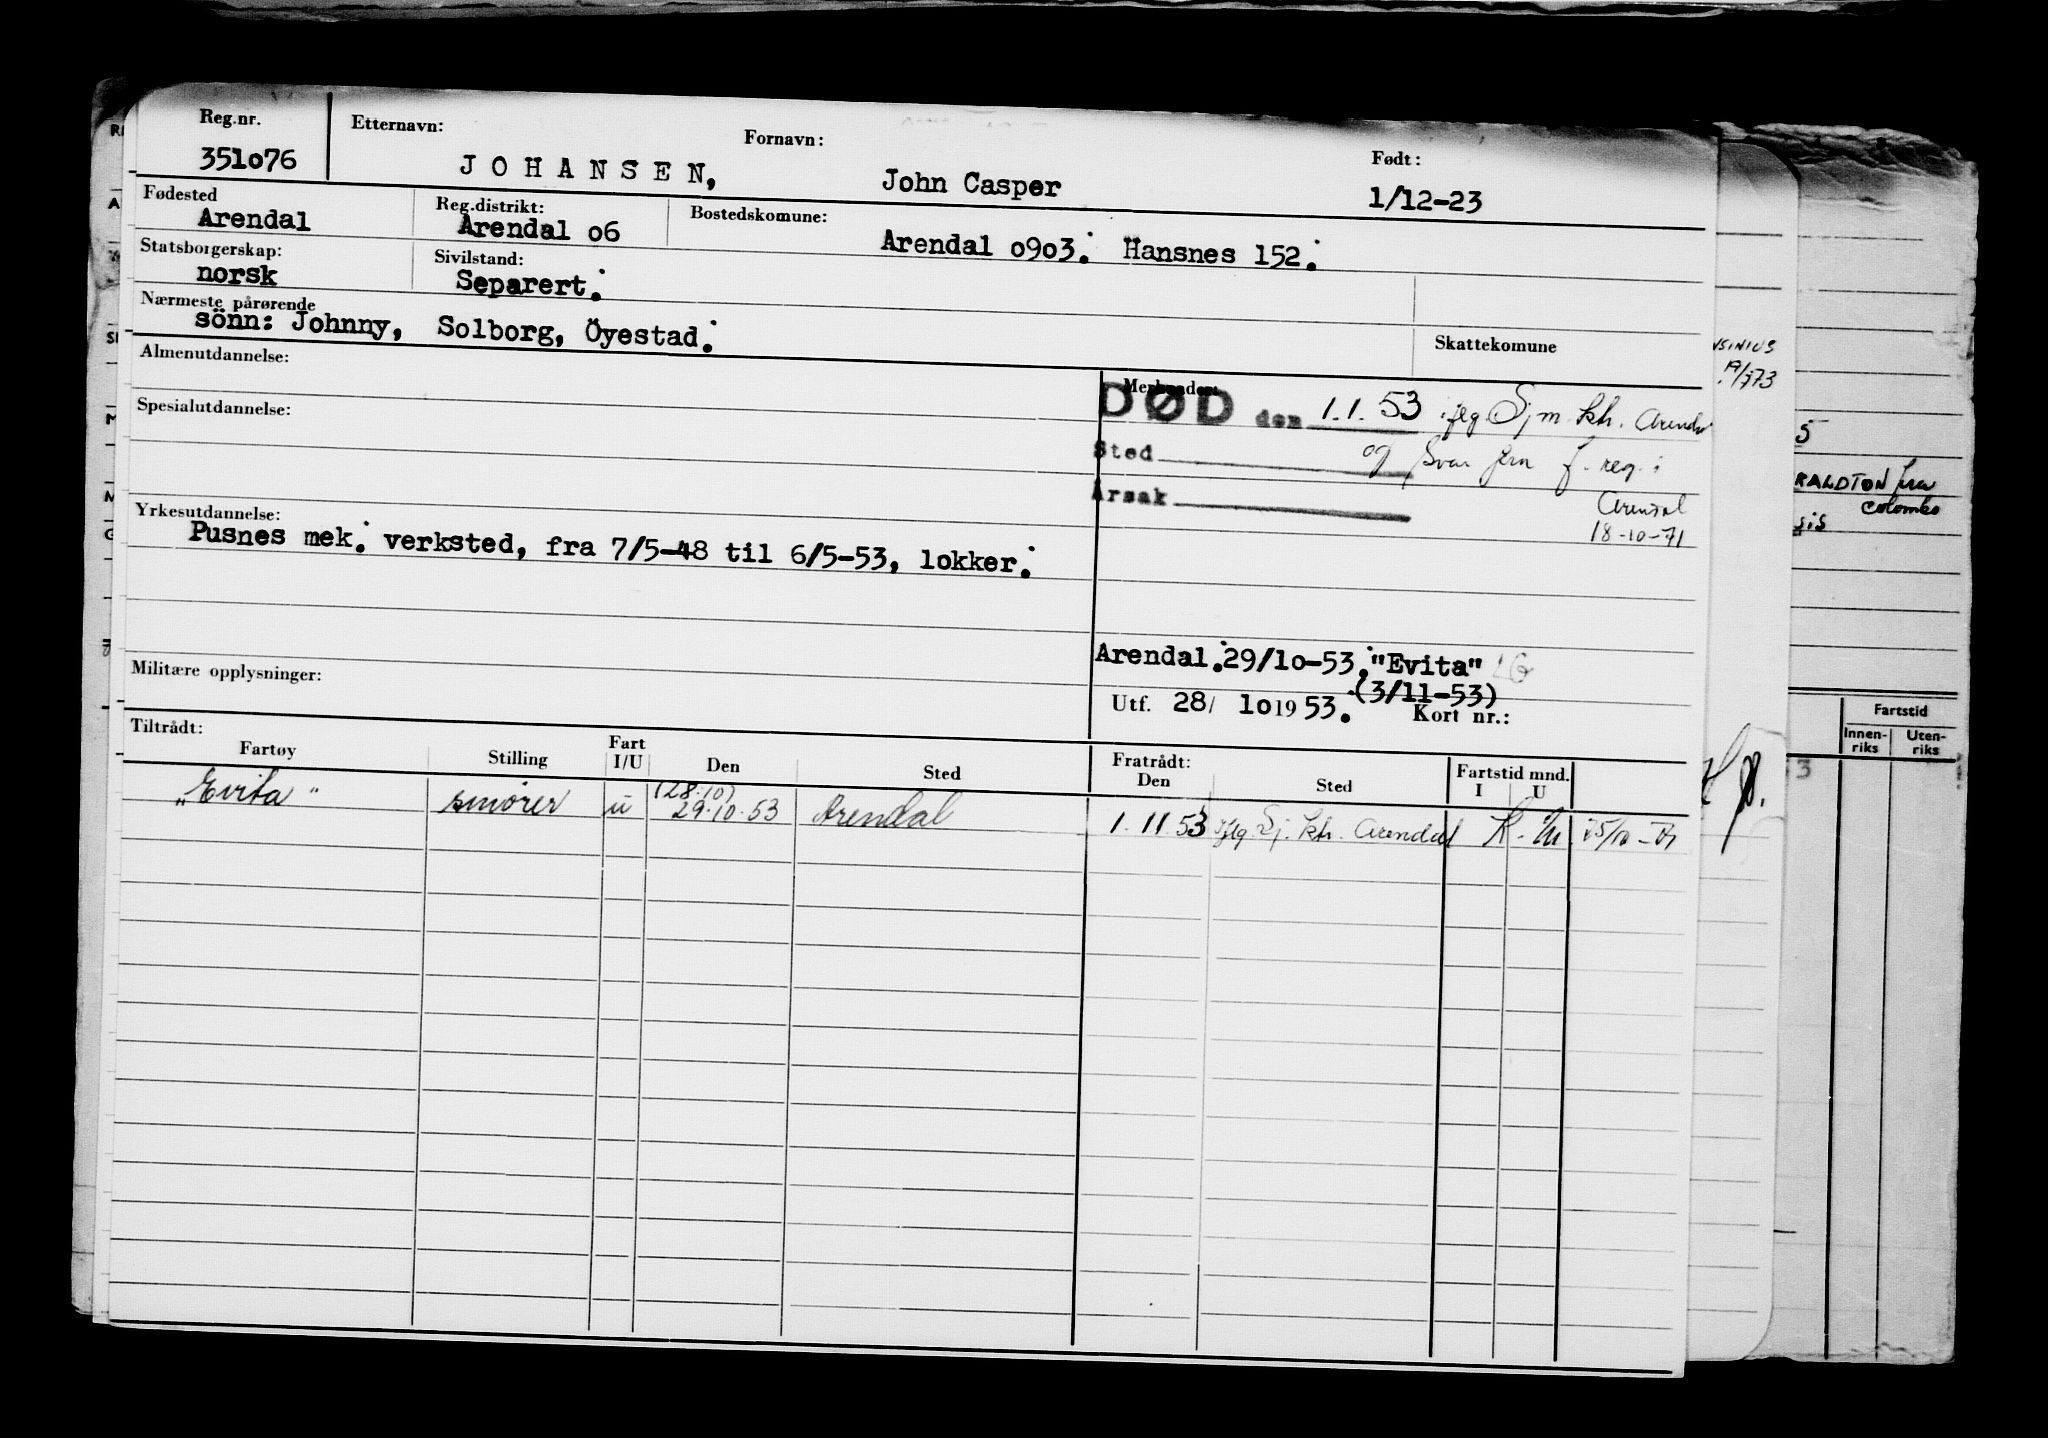 Reg.nr. Etternavn: Fornavn: Født:
351o76 JOHANSEN, John Casper 1/12-23
Fødested Reg.distrikt: Bostedskomune:
Arendal Arendal o6 Arendal o9o3. Hansnes 152.
Statsborgerskap: Sivilstand:
norsk Separert.
Nærmeste pårørende
sönn: Johnny, Solborg, Öyestad.
Skattekomune
Almenutdannelse:
Merknader:
DØD den 1.1.53 iflg Sjm.ktr. Arendal
Spesialutdannelse:
Sted og svar fra f.reg. i
Årsak Arendal
18-10-71
Yrkesutdannelse:
Pusnes mek. verksted, fra 7/5-48 til 6/5-53, lokker.
Arendal.29/1o-53."Evita"
(3/11-53)
Militære opplysninger:
Utf. 28/ 1o1953. Kort nr.:
Tiltrådt: Fratrådt:
Fartøy Stilling Fart I/U Den Sted Den Sted Fartstid mnd. I U
(28.10)
"Evita" smører u 29.10.53 Arendal 1.11.53 iflg. Sj.ktr. Arendal
RALDTON fra
Colombo
5
Fartstid
Innen-
riks
Uten-
riks
3